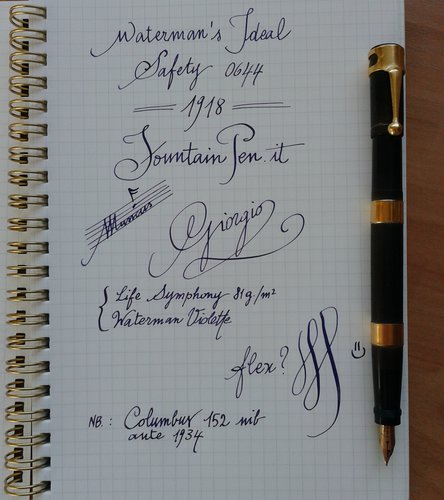 Waterman's Ideal
Safety 0644
1918
FountainPen.it
Musicus
Giorgio
Life Symphony 81g/m²
Waterman Violette
flex?
NB.: Columbus 152 nib
ante 1934